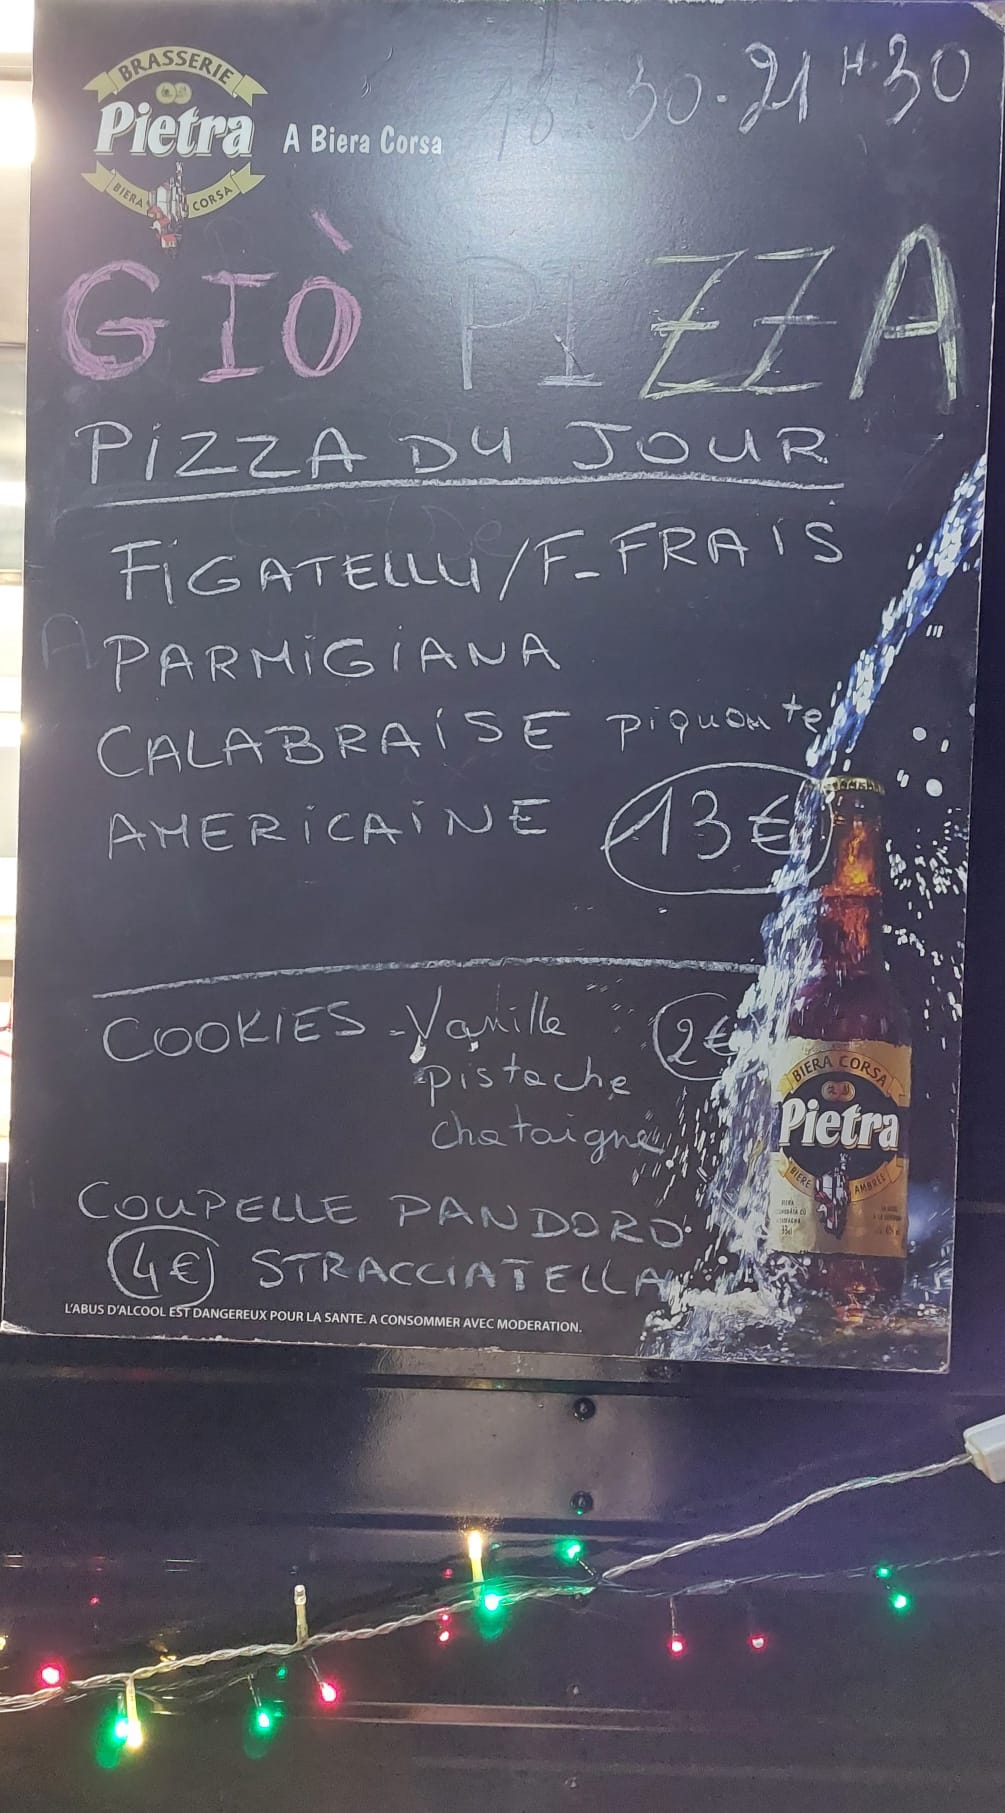 BRASSERIE
Pietra
BIERA CORSA
A Biera Corsa
18 30-21H30
GIÒ PIZZA
PIZZA DU JOUR
FIGATELLU/F-FRAIS
PARMIGIANA
CALABRAISE piquante
AMERICAINE 13€
COOKIES -Vanille 2€
pistache
chataigne
COUPELLE PANDORO
4€ STRACCIATELLA
BIERA CORSA
Pietra
BIÈRE AMBRÉE
33cl
L'ABUS D'ALCOOL EST DANGEREUX POUR LA SANTE. A CONSOMMER AVEC MODERATION.